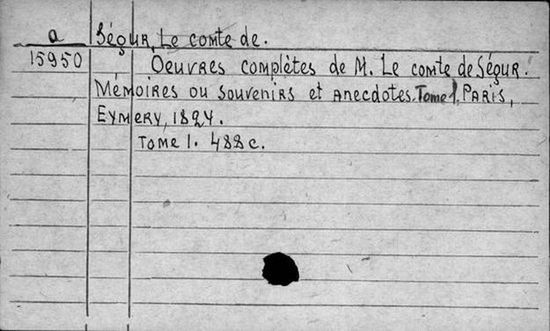 a Ségur, Le comte de.
15950 Oeuvres complètes de M. Le comte de Ségur.
Mémoires ou souvenirs et anecdotes. Tome 1. Paris,
Eymery, 1824.
Tome 1. 488 c.